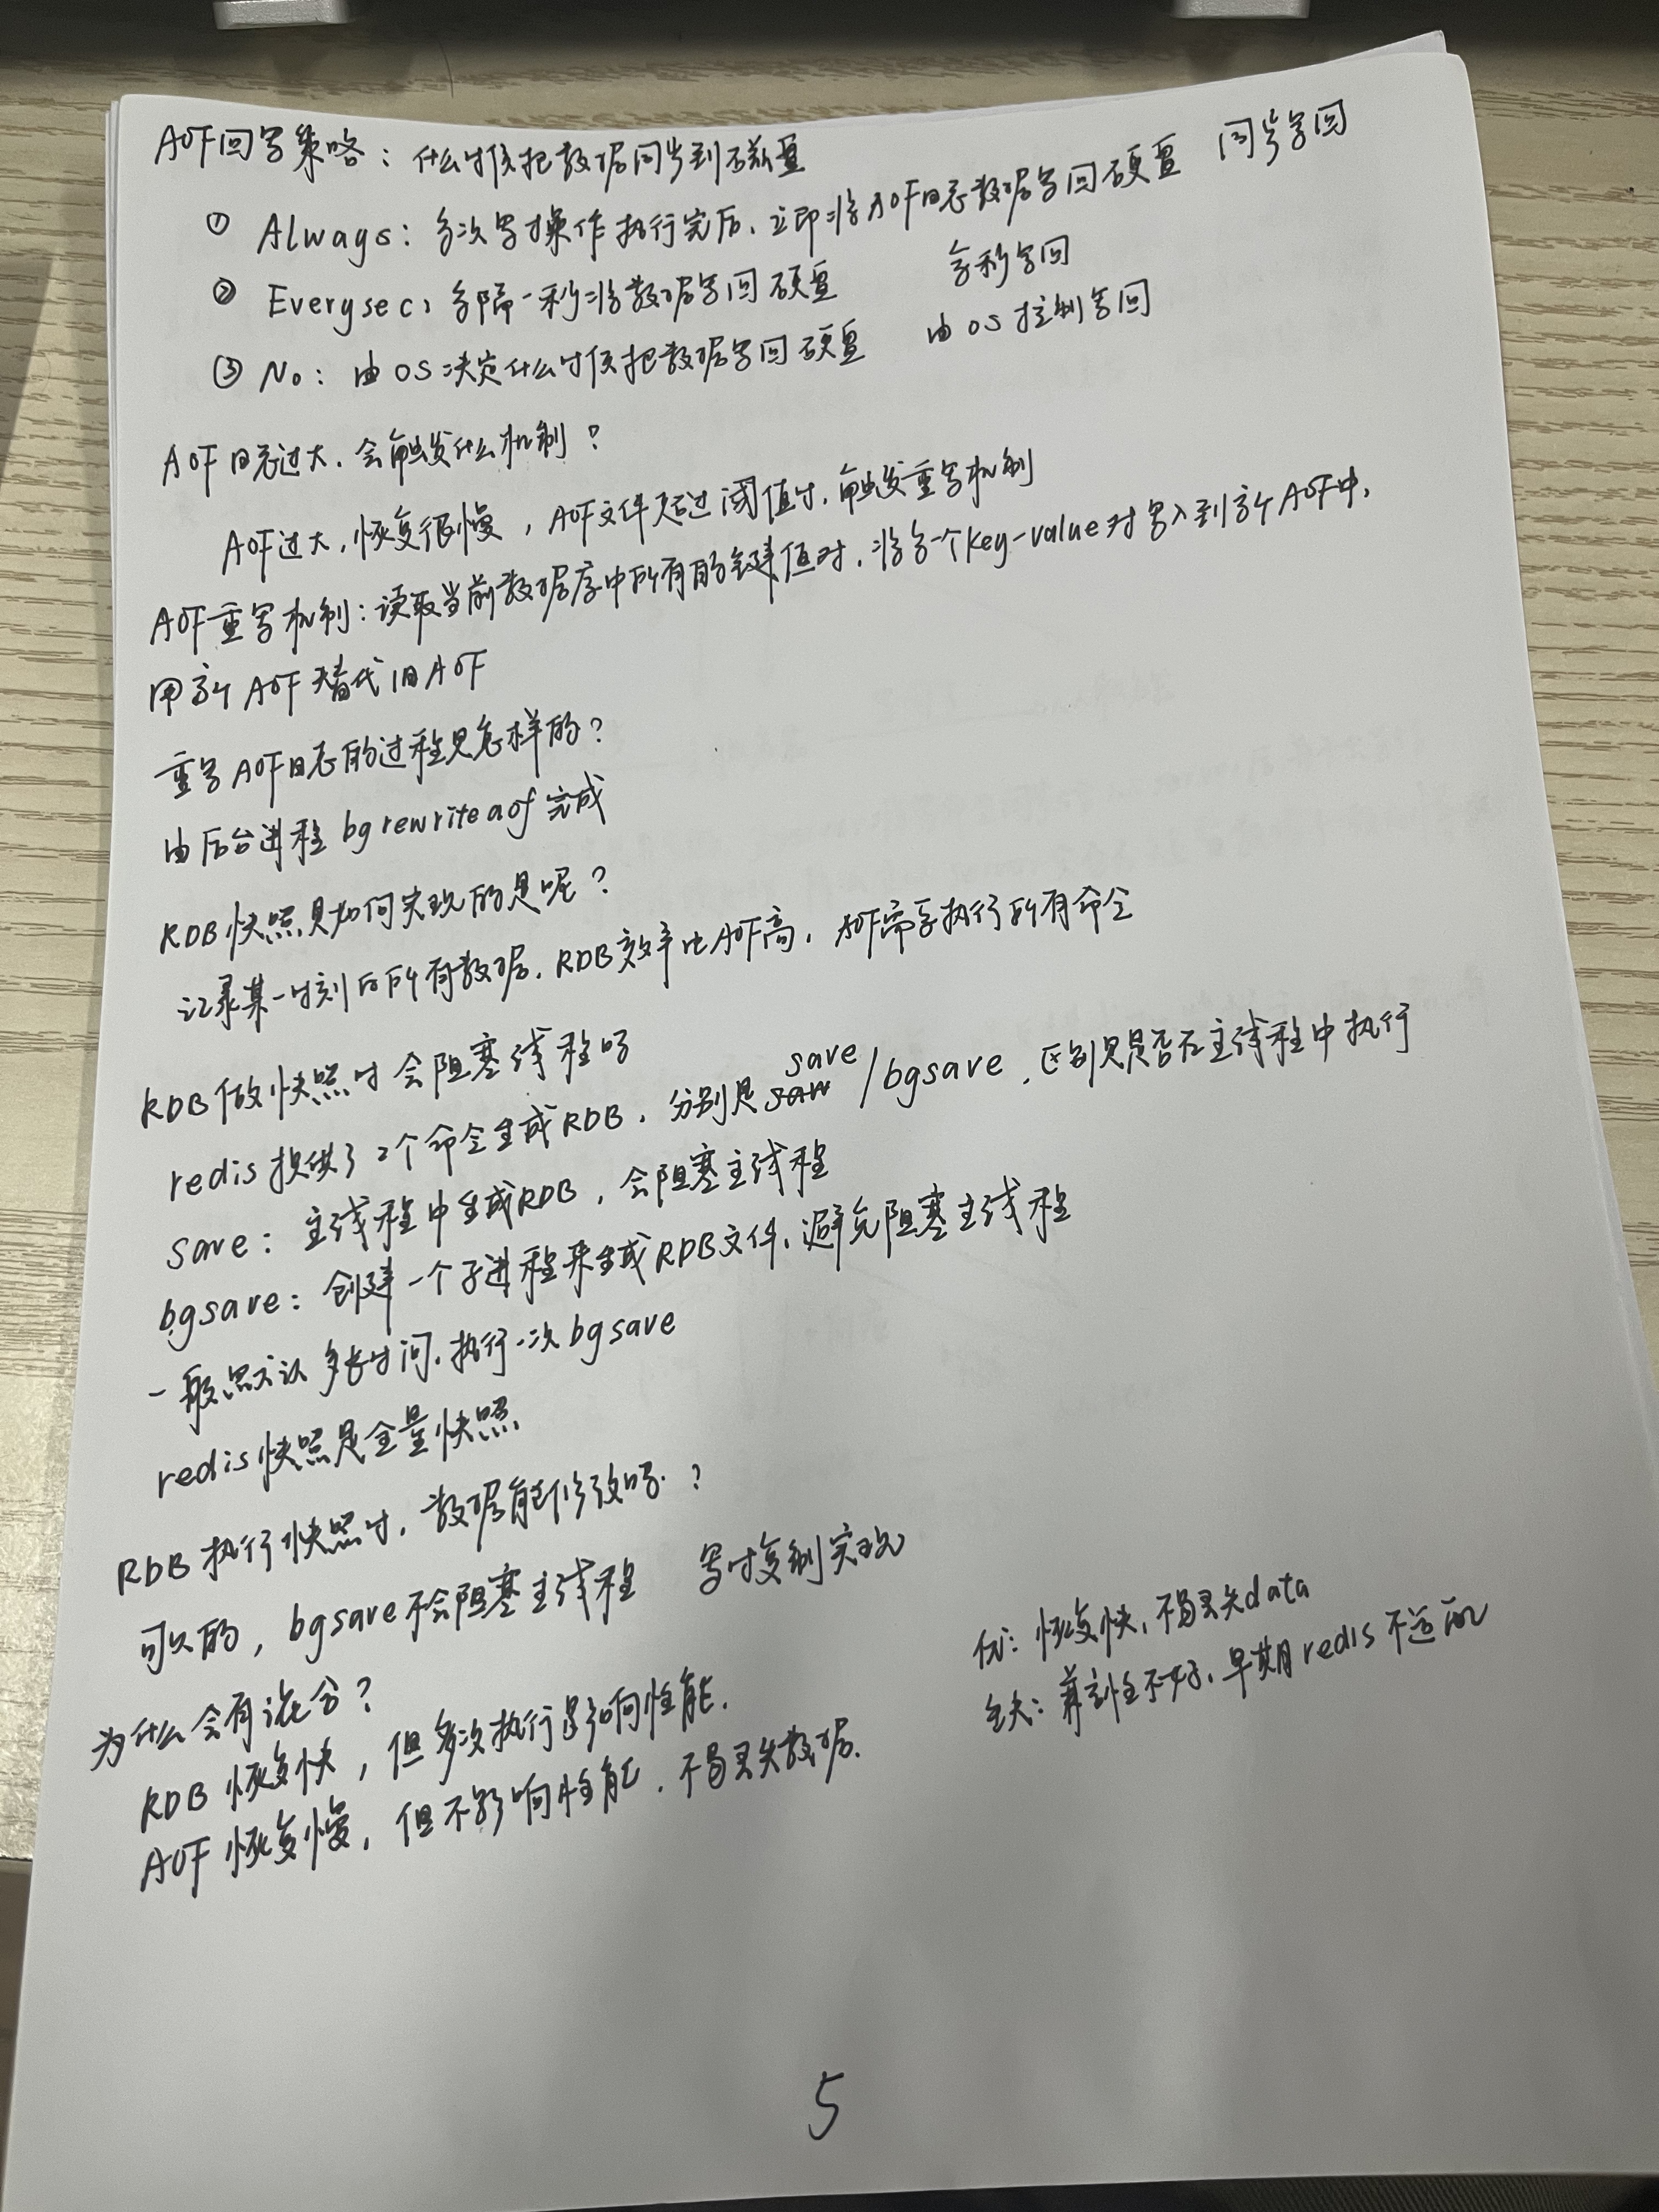 AOF回写策略：什么时候把数据同步到磁盘
① Always：每次写操作执行完后，立即将AOF日志数据写回硬盘 同步写回
② Everysec：每隔一秒将数据写回硬盘 每秒写回
③ No：由OS决定什么时候把数据写回硬盘 由OS控制写回
AOF日志过大，会触发什么机制？
AOF过大，恢复很慢，AOF文件超过阈值时，触发重写机制
AOF重写机制：读取当前数据库中所有的键值对，将每一个key-value对写入到新AOF中，
用新AOF替代旧AOF
重写AOF日志的过程是怎样的？
由后台进程bgrewriteaof完成
RDB快照是如何实现的是呢？
记录某一时刻的所有数据，RDB效率比AOF高，AOF需要执行所有命令
RDB做快照时会阻塞线程吗
redis提供了2个命令生成RDB，分别是save/bgsave，区别是是否在主线程中执行
save：主线程中生成RDB，会阻塞主线程
bgsave：创建一个子进程来生成RDB文件，避免阻塞主线程
一般默认多长时间，执行一次bgsave
redis快照是全量快照
RDB执行快照时，数据能修改吗？
可以的，bgsave不会阻塞主线程 写时复制实现
为什么会有混合？
RDB恢复快，但多次执行影响性能.
AOF恢复慢，但不影响性能，不易丢失数据.
优：恢复快，不易丢失data
缺：兼容性不好，早期redis不适配
5